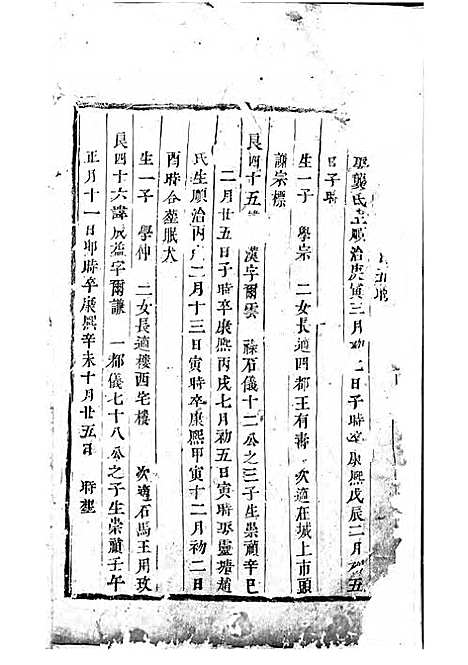 龔氏生順治庚寅三月初 日子時卒康熙戊辰二月初五
日子時
生一子 學宗 二女長適四都王有 次適在城上市頭
謝宗標
良四十五 漢字爾雲 祿石儀十二公之三子生崇禎辛巳
二月廿五日子時卒康熙丙戌七月初五日寅時娶靈塘趙
氏生順治丙 二月十三日寅時卒康熙甲寅十二月初二日
酉時合塟眠犬
生一子 學仲 二女長適樓西宅樓 次適石馬王用玫
良四十六諱成益字爾謙 一都儀七十八公之子生崇禎壬午
正月十一日卯時卒康熙辛未十月廿五日 時塟